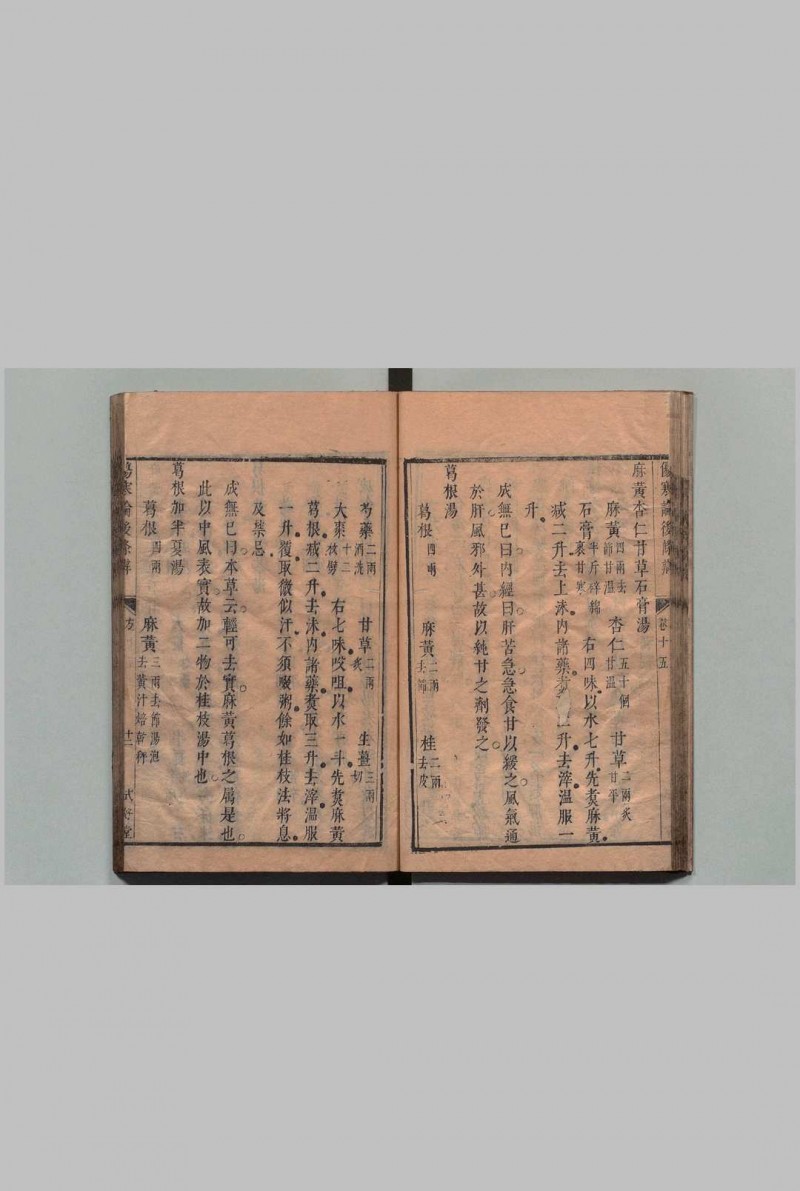 傷寒論後條辨 卷十五
麻黃杏仁甘草石膏湯
麻黃四兩去節甘溫 杏仁五十個甘溫 甘草二兩炙甘平
石膏半斤碎綿裹甘寒 右四味以水七升先煑麻黃
減二升去上沫內諸藥煑二升去滓溫服一
升
成無已曰內經曰肝苦急急食甘以緩之風氣通
於肝風邪外甚故以純甘之劑發之
葛根湯
葛根四兩 麻黃二兩去節 桂二兩去皮
芍藥二兩酒洗 甘草二兩炙 生薑三兩切
大棗十二枚劈 右七味㕮咀以水一斗先煑麻黃
葛根減二升去沫內諸藥煑取三升去滓溫服
一升覆取微似汗不須啜粥餘如桂枝法將息
及禁忌
成無已曰本草云輕可去實麻黃葛根之屬是也
此以中風表實故加二物於桂枝湯中也
葛根加半夏湯
葛根四兩 麻黃三兩去節湯泡去黃汁焙乾稱
傷寒論後條辨 方 十二 式好堂